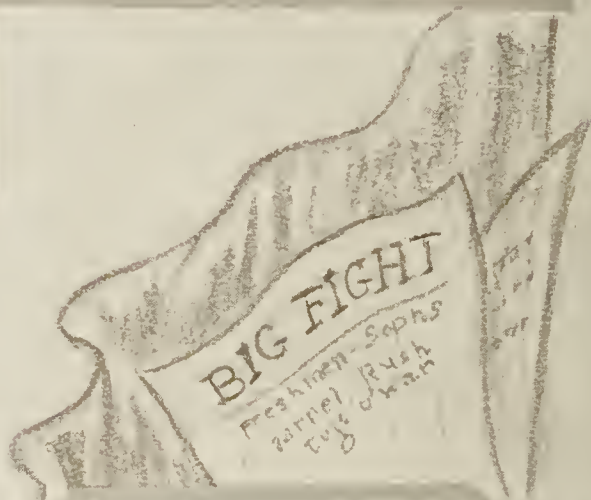 BIG FIGHT
Freshmen-Sophs
Barrel Rush
Tug o' War